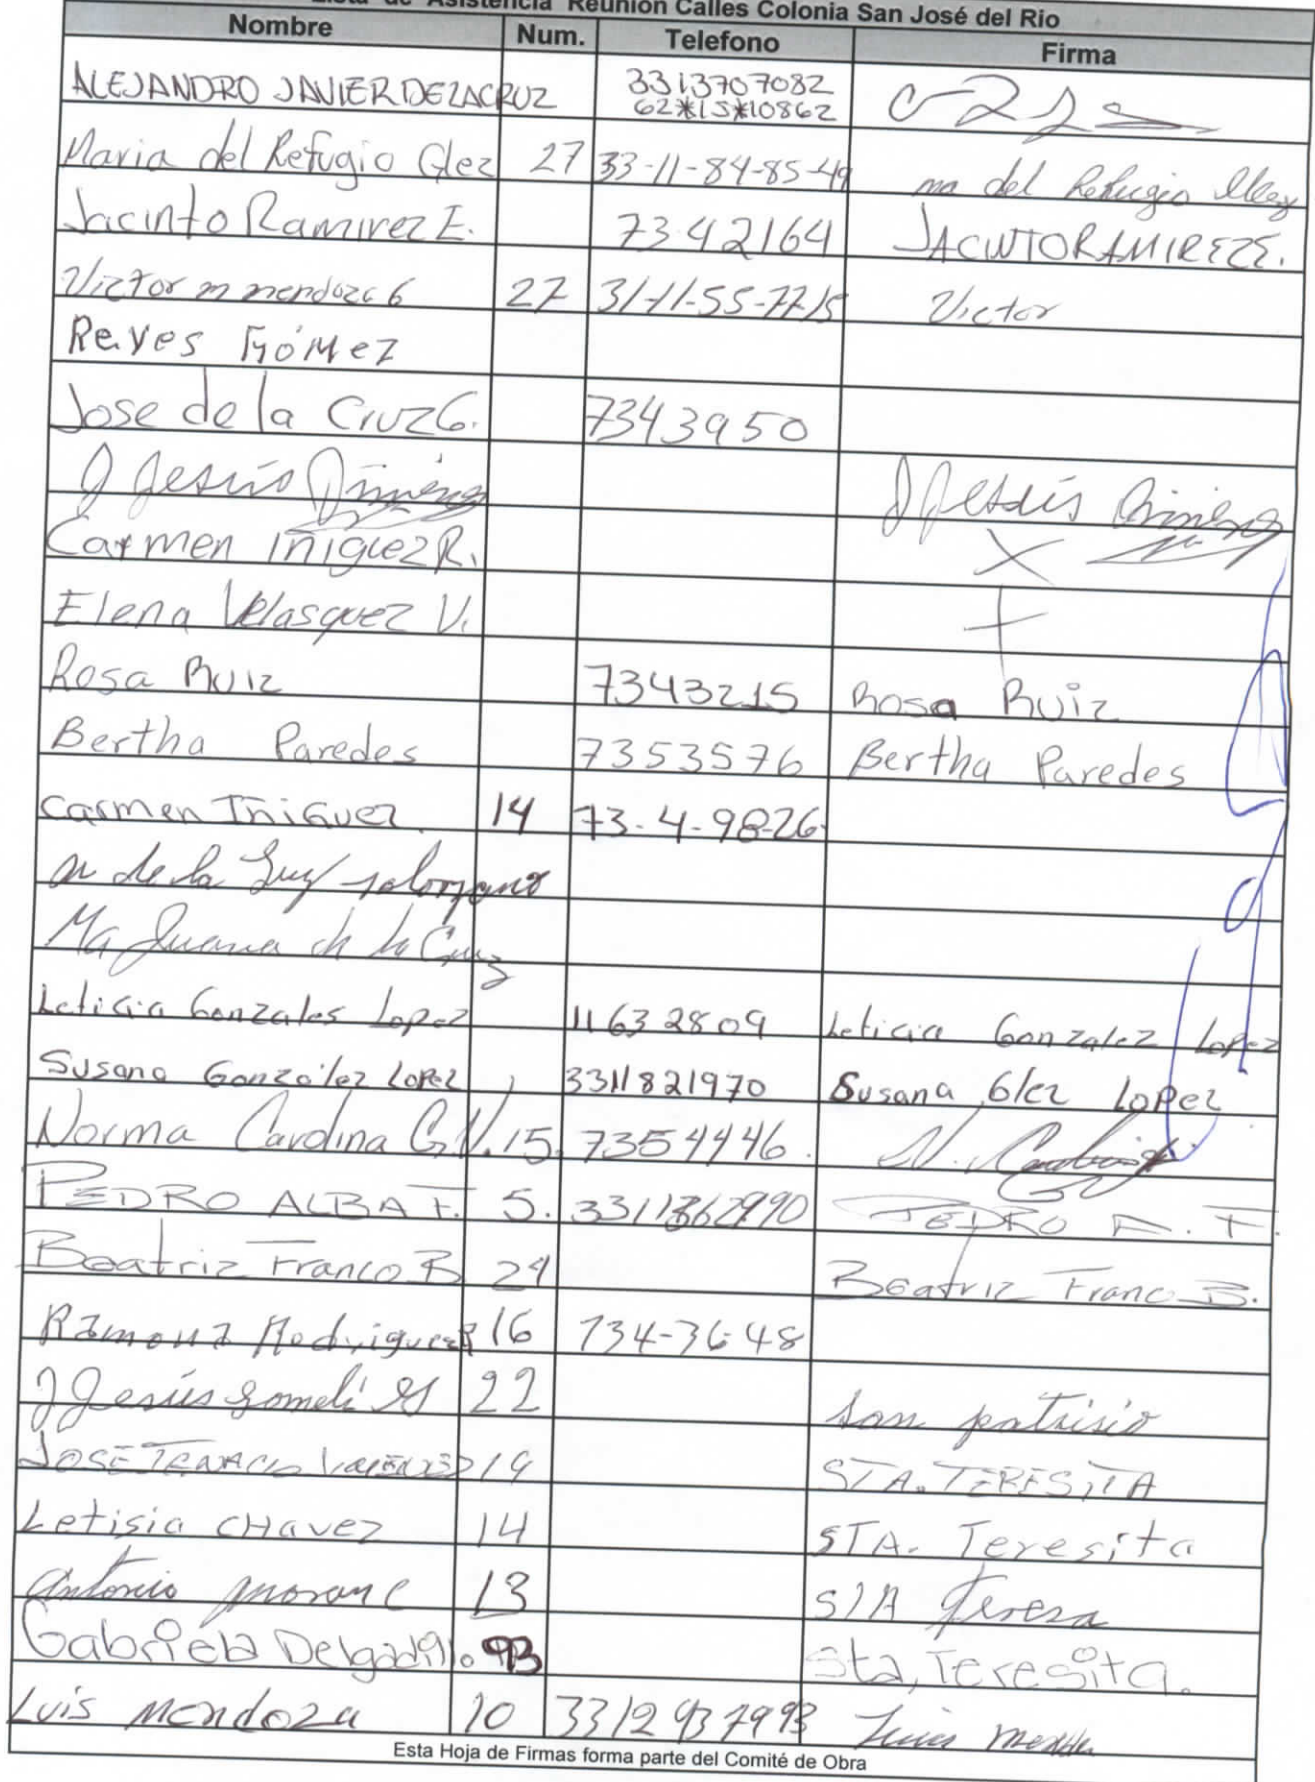 Lista de Asistencia Reunión Calles Colonia San José del Rio
Nombre Num. Telefono Firma
ALEJANDRO JAVIER DE LA CRUZ 3313707082
62*15*10862
Maria del Refugio Glez 27 33-11-84-85-49 ma del Refugio Glez
Jacinto Ramirez E. 73 42164 JACINTO RAMIREZ E.
Victor m mendoza G 27 31-11-55-77-15 Victor
Reyes Gómez
Jose de la Cruz G. 7343950
J Jesús Jiménez J Jesús Jiménez
Carmen Iñiguez R. X
Elena Velasquez V. +
Rosa Ruiz 7343215 Rosa Ruiz
Bertha Paredes 7353576 Bertha Paredes
Carmen Iñiguez 14 73-4-98-26
m de la Luz solorzano
Ma Juana de la Cruz
Leticia Gonzales Lopez 11632809 Leticia Gonzalez Lopez
Susana González Lopez 3311821970 Susana Glez Lopez
Norma Carolina G.V. 15. 7354446. N. Carolina G
PEDRO ALBA F. 5. 3311362990 PEDRO A. F.
Beatriz Franco B 24 Beatriz Franco B.
Ramona Rodriguez R 16 734-36-48
J Jesús Gomeli 22 san patrisio
JOSE 19 STA. TERESITA
Letisia CHavez 14 STA. Teresita
Antonio moran C 13 STA Teresa
Gabriela Delgadillo 93 Sta, Teresita.
Luis Mendoza 10 3312937993 Luis Mendoza
Esta Hoja de Firmas forma parte del Comité de Obra